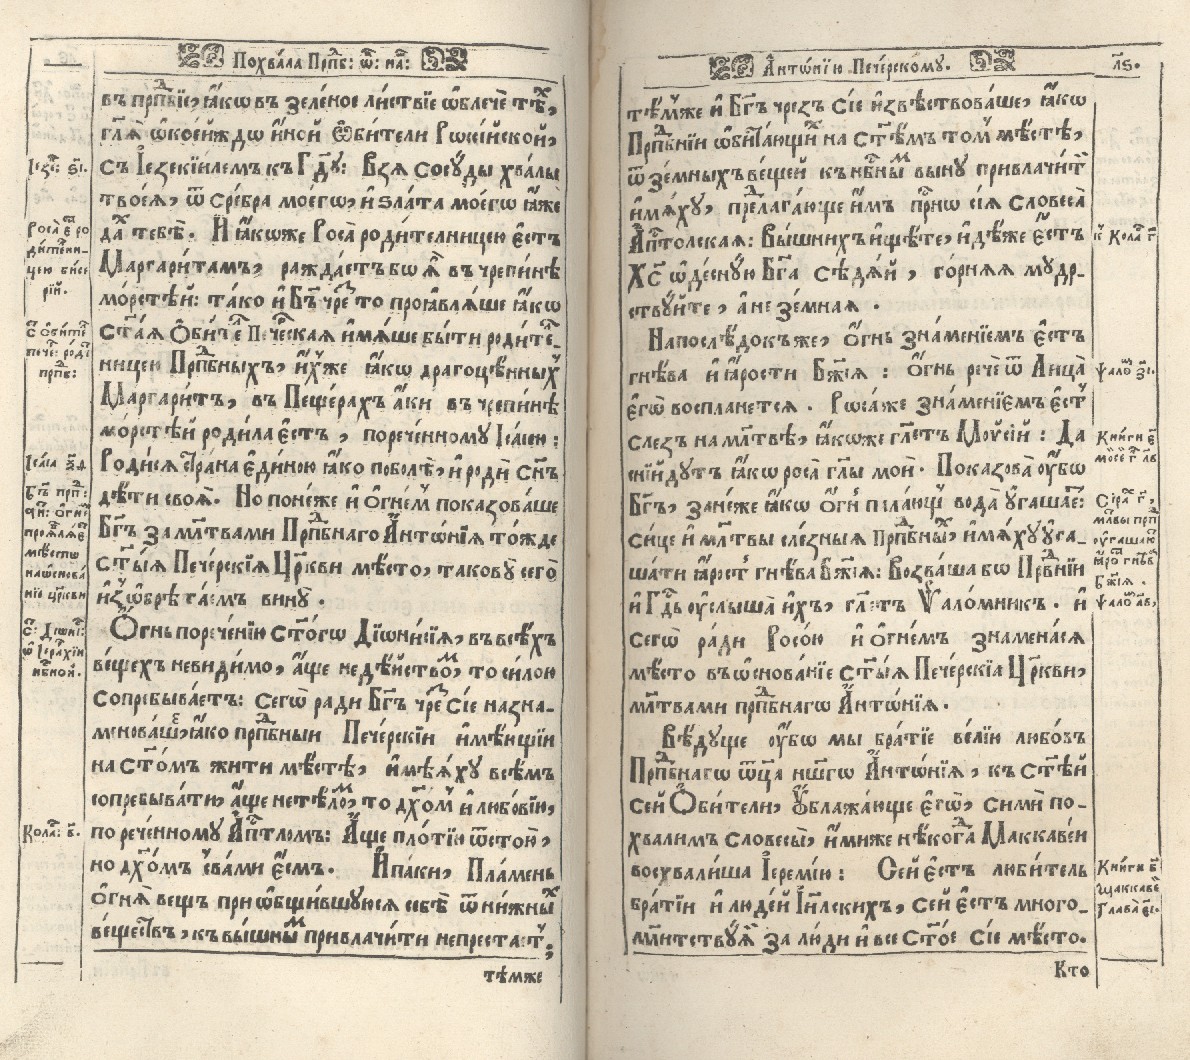 Похва́ла Прпⷣб: ѿ: на́:
въ прпⷣбїе, ꙗ҆́кѡ въ зеле́ное ли́ствїе ѡ҆блечѐ тѣⷯ,
съ І҆езекі́илемъ къ Гдⷭ҇ꙋ: Взѧ̀ сосꙋ́ды хвалы̀
твоеѧ̀, ѿ сре́бра моегѡ̀, и҆ ѕла́та моегѡ̀ ꙗ҆́же
да́хъ тебѣ̀. И҆ ꙗ҆́коже Роса̀ роди́телницею є҆́стъ
Маргари́тамъ, ражда́етъ бѡ ѧ҆̀ въ чрепи́нѣ
мо́рстѣй: та́ко и҆ Бг҃ъ чреⷥ то проѧвлѧ́ше ꙗ҆́кѡ
ст҃аѧ Ѻ҆би́теⷧ Пече́рскаѧ и҆мѧ́ше бы́ти роди́теⷧ-
ницею Прпⷣбныхъ, и҆́хже ꙗ҆́кѡ драгоцѣ́нныхъ
Маргари́тъ, въ Пеще́рахъ а҆́ки въ чрепи́нѣ
мо́рстѣй роди́ла є҆́стъ, порече́нномꙋ І҆са́їею:
Роди́сѧ Страна̀ є҆ди́ною ꙗ҆́ко поболѣ̀, и҆ родѝ Сїѡ́нъ
дѣ́ти своѧ̀. Но поне́же и҆ ѻ҆гне́мъ показова́ше
Бг҃ъ за мл҃твами Прпⷣбнаго А҆нтѡ́нїѧ то́жде
ст҃ы́ѧ Пече́рскїѧ Цр҃кви мѣ́сто, такову̀ сегѡ̀
и҆з̾ѡбрѣта́емъ вину̀.
Ѻ҆́гнь порече́нїю ст҃о́гѡ Дїѡни́сїѧ, въ всѣ́хъ
ве́щехъ неви́димо, а҆́ще не дѣ́йствоⷨ, то си́лою
сопребыва́етъ: сегѡ̀ ра́ди Бг҃ъ чреⷥ сїѐ назна-
менова́ше, ꙗ҆́ко прпⷣбныи Пече́рскїи и҆мѣ́ющїи
на ст҃о́мъ жи́ти мѣ́стѣ, и҆мѣ́ѧхꙋ всѣ́мъ
сопребыва́ти, а҆́ще не тѣ́лоⷨ, то дх҃о́мъ и҆ любо́вїю,
по рече́нномꙋ А҆пⷭ҇толомъ: А҆́ще пло́тїю ѿстою̀,
но дх҃о́мъ съ ва́ми є҆́смь. И҆ па́ки, Пла́мень
ѻ҆́гнѧ ве́щъ прїѡбщи́вшꙋюсѧ себѣ̀ ѿ ни́жныⷯ
веще́ствъ, къ вы́шныⷨ привлачи́ти непреста́етъ,
те́мже
Роса̀ є҆́стъ ро
ди́телни-
цею би́се
рїй.
Кола́: в҃.
А҆нтѡ́нїю Пече́рскомꙋ.
л҃ѕ.
тѣ́мже и҆ Бг҃ъ чрезъ сїѐ и҆звѣ́ствова́ше, ꙗ҆́кѡ
Прпⷣбнїи ѡ҆бита́ющїи на ст҃ѣ́мъ то́мъ мѣ́стѣ,
ѿ зе́мныхъ ве́щей къ нбⷭ҇ныⷨ вы́ну привлачи́ти
и҆мѧ́хꙋ, предлага́юще и҆мъ при́сно сїѧ̀ словеса̀
А҆пⷭ҇толская: Вы́шнихъ и҆щѣ́те, и҆дѣ́же є҆́стъ
Хс҃ ѡ҆деснꙋ́ю Бг҃а сѣдѧ́й, го́рняя мꙋ́др-
ствꙋйте, а҆ не земна́я.
Напослѣ́докъ же, ѻ҆́гнь зна́менїемъ є҆́стъ
гнѣ́ва и҆ ꙗ҆́рости Бж҃їѧ: ѻ҆́гнь речѐ ѿ Лица̀
є҆гѡ̀ воспла́нется. Роса́ же зна́менїемъ є҆́стъ
сле́зъ на мл҃твѣ, ꙗ҆́коже гл҃етъ Моѷсі́й: Да
сни́йдꙋтъ ꙗ҆́кѡ роса̀ гл҃ы мои̑. Показова̀ ᲂу҆́бѡ
Бг҃ъ, зане́же ꙗ҆́кѡ ѻ҆́гнь пала́ющъ вода̀ ᲂу҆гаша́етъ:
си́це и҆ мл҃твы сле́зныѧ Прпⷣбныⷯ, и҆мѧ́хꙋ ᲂу҆га-
ша́ти ꙗ҆́рость гнѣ́ва Бж҃їѧ: Возва́ша бѡ Прв҃днїи
и҆ Гдⷭ҇ь ᲂу҆слы́ша и҆́хъ, гл҃етъ Ѱало́мникъ. и҆
сегѡ̀ ра́ди Росо́ю и҆ ѻ҆гне́мъ зна́менасѧ
мѣ́сто въ ѡ҆снова́нїе ст҃ы́ѧ Пече́рскїѧ Цр҃кви,
мл҃твами прпⷣбнагѡ А҆нтѡ́нїѧ.
Вѣ́дꙋще ᲂу҆́бѡ мы̀ бра́тїе ве́лїю любо́въ
Прпⷣбнагѡ ѿца̀ нш҃егѡ А҆нтѡ́нїѧ, къ ст҃ѣ́й
се́й Ѻ҆би́тели, ᲂу҆блажа́юще є҆гѡ̀, си́ми по-
хва́лимъ словесы̀, и҆́миже нѣ́когда Маккаве́и
восхвали́ша І҆еремі́ю: Се́й є҆́стъ люби́тель
бра́тїи и҆ люде́й І҆и҃лскихъ, се́й є҆́стъ мно́го-
мл҃итствꙋѧ̀ за лю́ди и҆ все ст҃о́е сїѐ мѣ́сто.
Кто
к҃ Кола́ г҃
Кни́ги в҃
Маккаве́
Глава̀ е҃і.